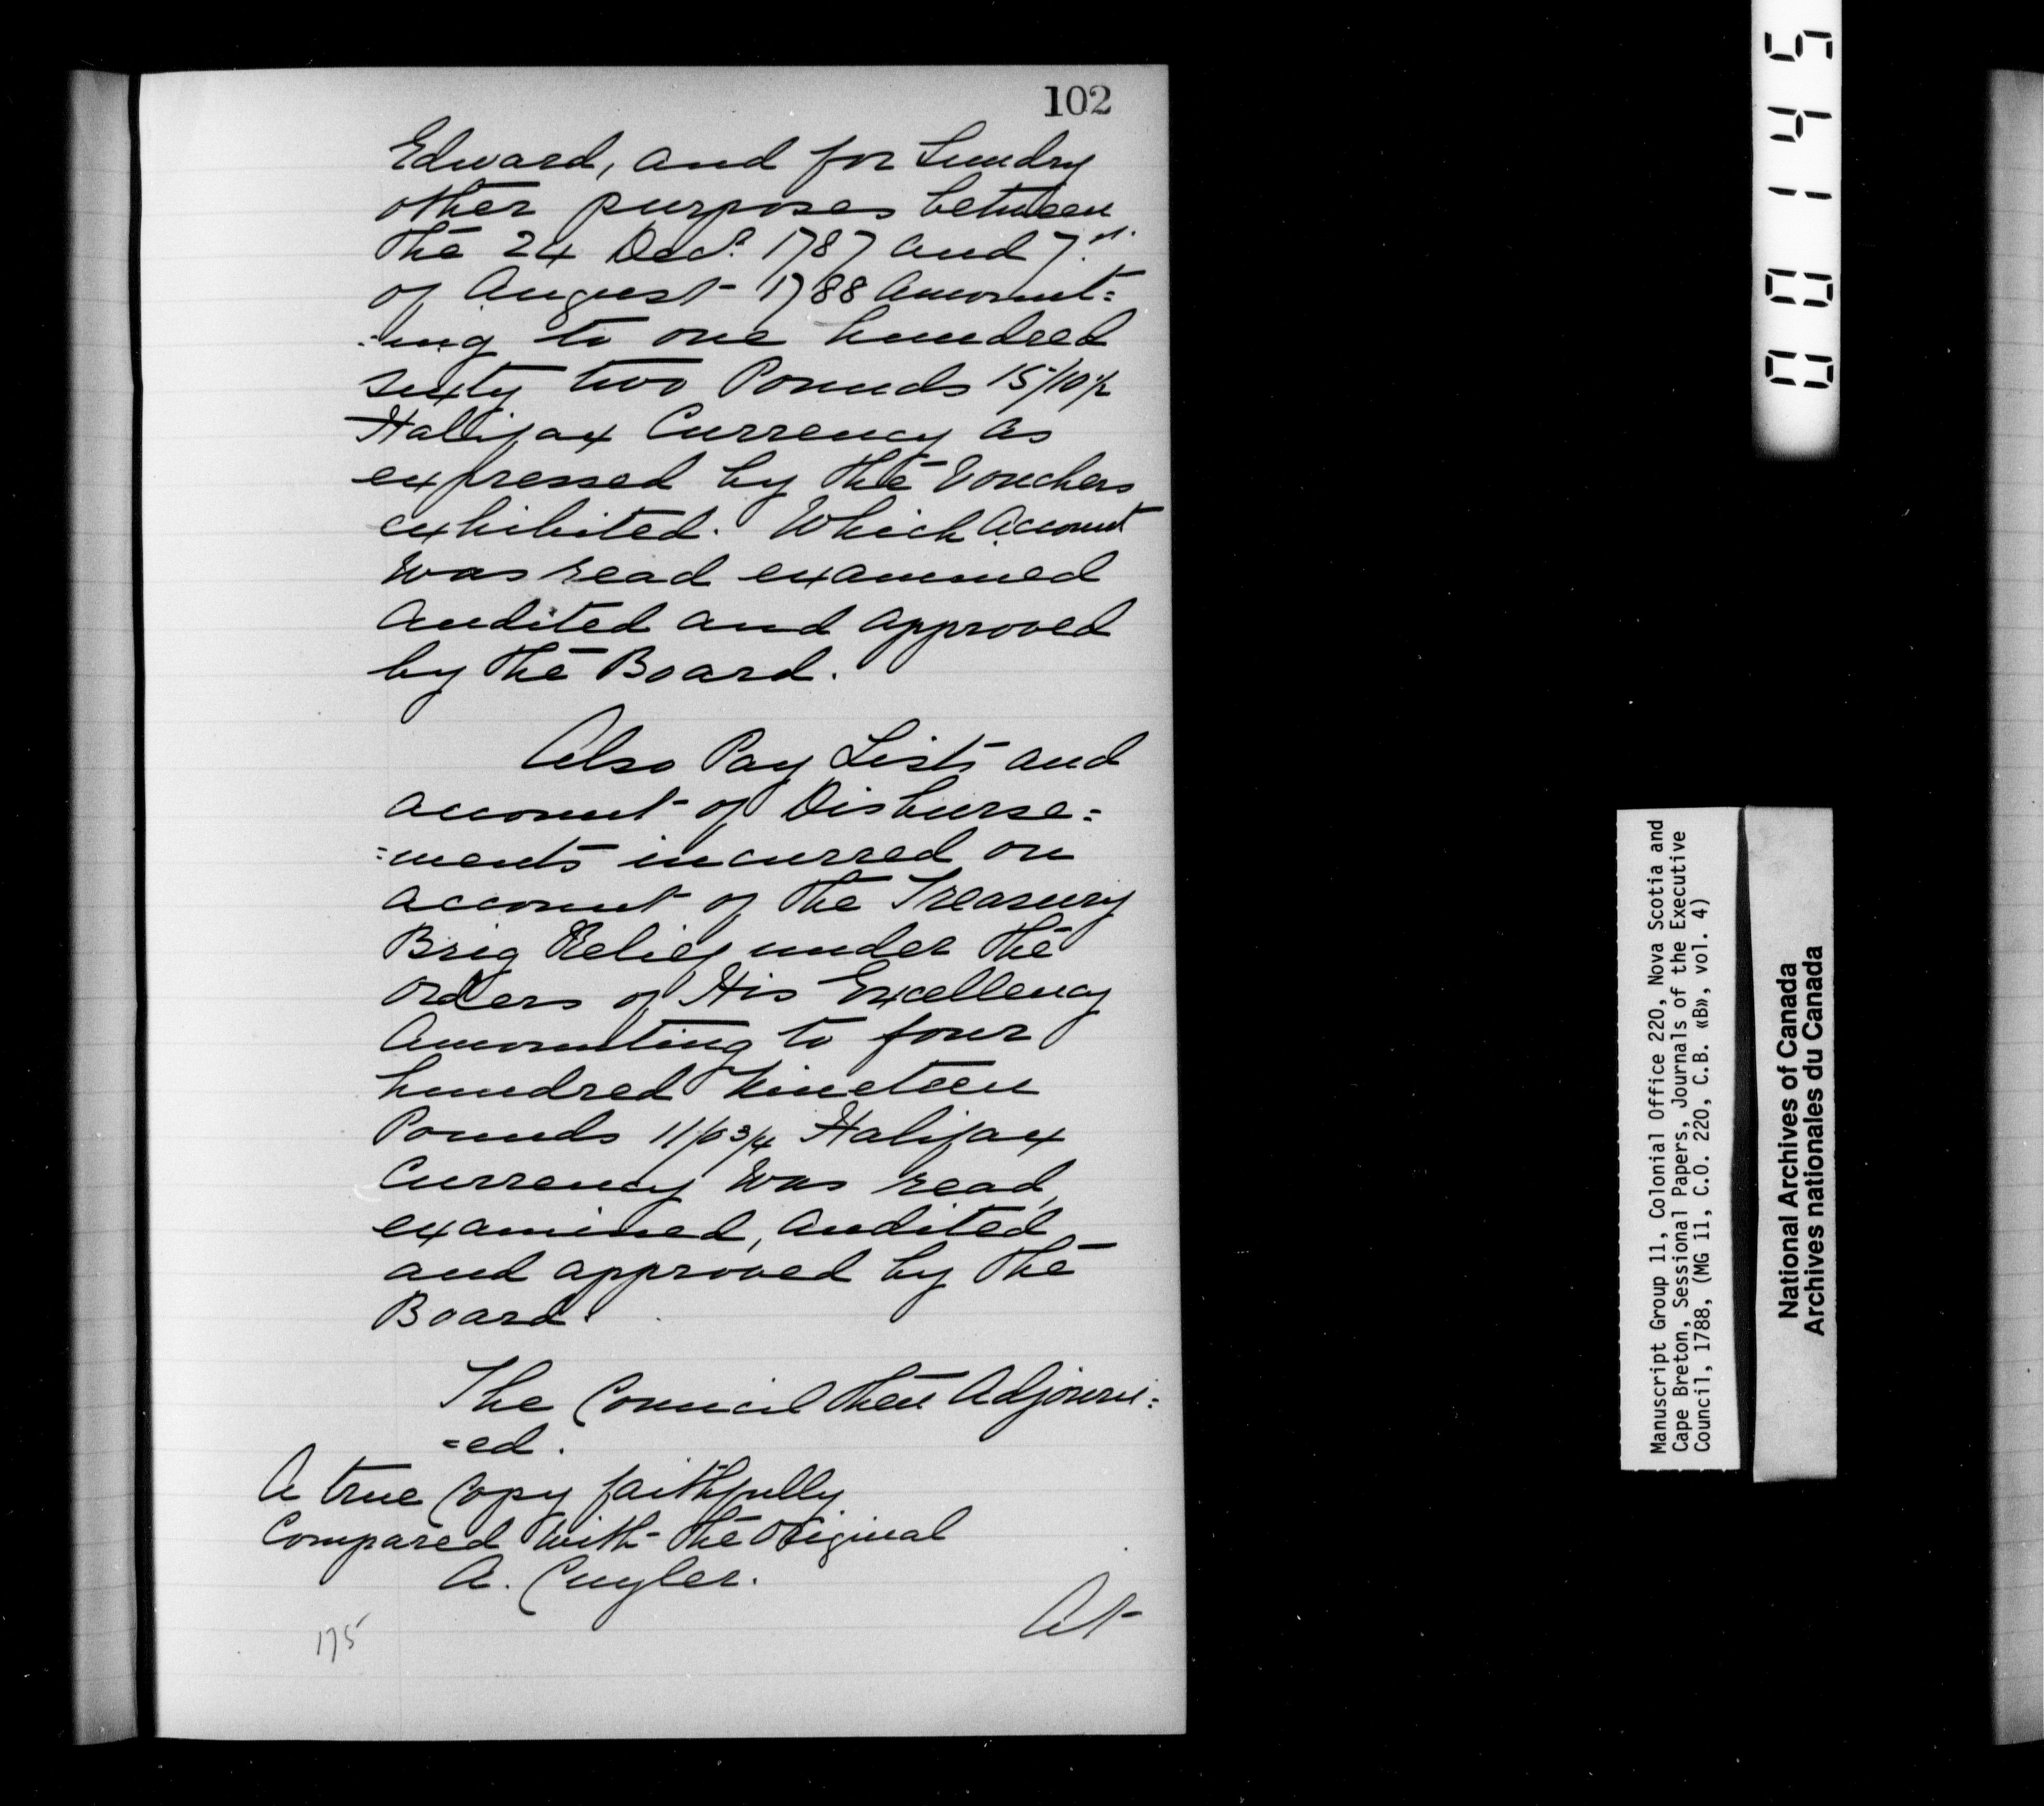 102
Edward, and for Sundry
other purposes between
the 24 Decr. 1787 and 7th.
of August 1788 Amount=
=ing to one hundred
sixty two Pounds 15/10½
Halifax Currency as
expressed by the Vouchers
exhibited. Which Account
was read examined
Audited and approved
by the Board.
Also Pay Lists and
account of Disburse=
=ments incurred on
account of the Treasury
Brig Relief under the
orders of His Excellency
Amounting to four
hundred Nineteen
Pounds 11/03/4 Halifax
Currency was read,
examined, Audited
and approved by the
Board.
The Council then Adjourn=
=ed.
A true Copy faithfully
Compared with the Original
A. Cuyler.
At
175
00145
Manuscript Group 11, Colonial Office 220, Nova Scotia and
Cape Breton, Sessional Papers, Journals of the Executive
Council, 1788, (MG 11, C.O. 220, C.B. «B», vol. 4)
National Archives of Canada
Archives nationales du Canada